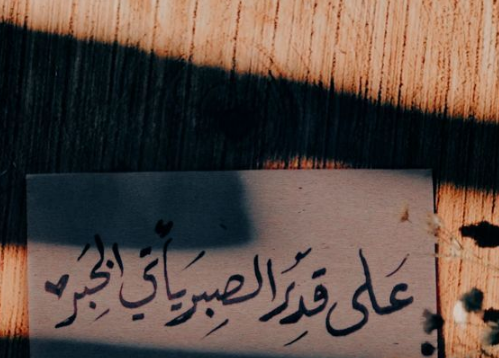 عَلى قدِرِّ الصبرِ يَأتي الجَبر